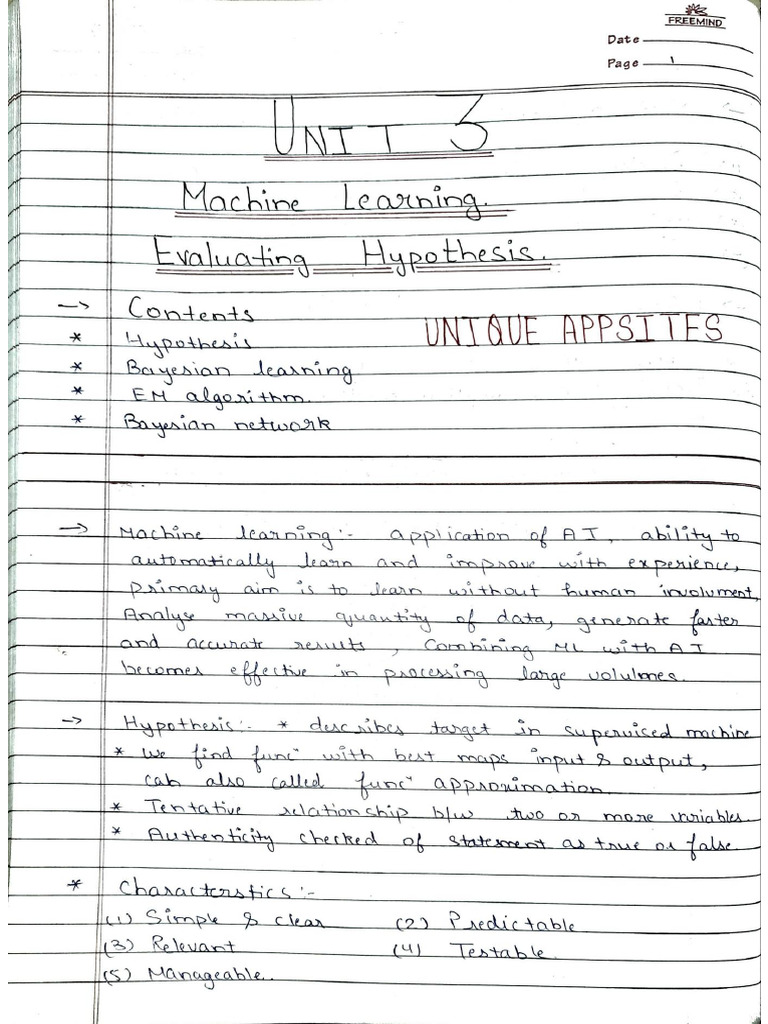 FREEMIND
Date
Page 1
UNIT 3
Machine Learning.
Evaluating Hypothesis.
→ Contents
* Hypothesis
UNIQUE APPSITES
* Bayesian learning
* EM algorithm.
* Bayesian network
→ Machine learning:- application of AI, ability to
automatically learn and improve with experience,
primary aim is to learn without human involument,
Analyse massive quantity of data, generate faster
and accurate results, Combining ML with AI
becomes effective in processing large volulmes.
→ Hypothesis:- * describes target in supervised machine
* We find funcⁿ with best maps input & output,
can also called funcⁿ approximation.
* Tentative relationship b/w two or more variables
* Authenticity checked of statement as true or false
* Characterstics:-
(1) Simple & clear (2) Predictable
(3) Relevant (4) Testable.
(5) Manageable.